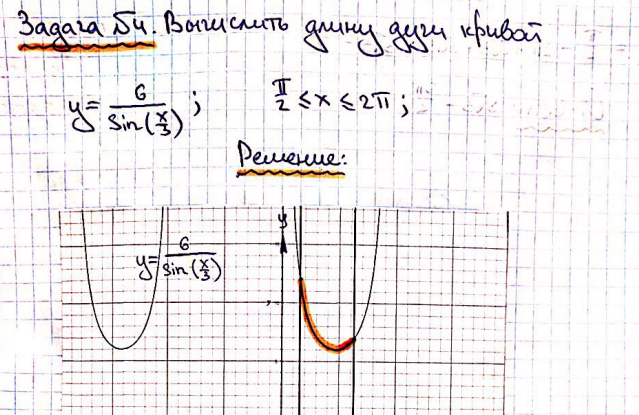 Задача №4. Вычислить длину дуги кривой
y = 6 / sin(x/3) ; π/2 ≤ x ≤ 2π ;
Решение:
y
y = 6 / sin(x/3)